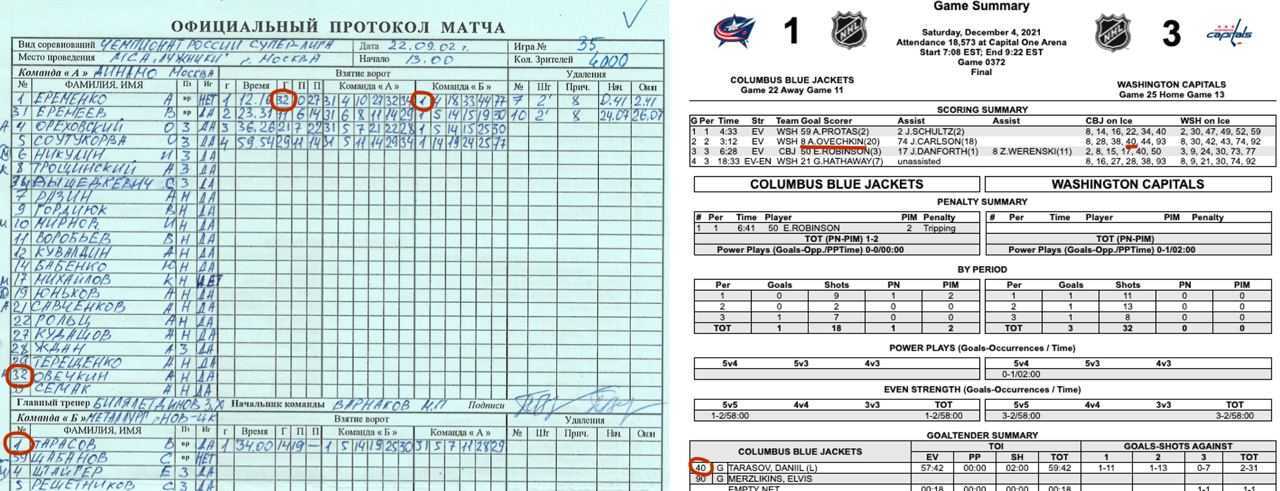 ОФИЦИАЛЬНЫЙ ПРОТОКОЛ МАТЧА
Вид соревнований ЧЕМПИОНАТ РОССИИ СУПЕР-ЛИГА Дата 22.09.02 г. Игра № 35
Место проведения МСА „ЛУЖНИКИ" г. МОСКВА Начало 13.00 Кол. Зрителей 4000
Команда «А» ДИНАМО МОСКВА Взятие ворот Удаления
№ ФАМИЛИЯ, ИМЯ Пз Иг Г Время Г П П Команда «А» Команда «Б» № Шт Прич. Нач Окон
1 ЕРЕМЕНКО А вр НЕТ 1 32 0 27 31 4 10 27 32 34 1 4 18 33 44 77 7 2' 8 0.41 2.41
31 ЕРЕМЕЕВ В вр ДА 2 23.31 10 2' 8 24.07 26.07
4 ОРЕХОВСКИЙ О З ДА 3 36.26 21 7 22 31 5 7 21 22 28 1 5 14 15 25 30
5 СОУТУКОРВА О З ДА 4 59.54 29 11 14 31 5 11 14 29 34 1 14 19 24 25 77
6 НИКУЛИН И З ДА
8 ТРОЩИНСКИЙ А З ДА
34 ВЫШЕДКЕВИЧ С З ДА
7 РАЗИН А Н ДА
9 ГОРДИЮК В Н ДА
10 МИРНОВ И Н ДА
11 ВОРОБЬЕВ В Н ДА
12 КУВАЛДИН А Н ДА
14 БАБЕНКО Ю Н ДА
17 МИХАЙЛОВ К Н НЕТ
19 ЮНЬКОВ А Н ДА
21 САВЧЕНКОВ А Н ДА
22 РОЛЬЦ А Н ДА
27 КУДАШОВ А Н ДА
28 ЖДАН А З ДА
29 ТЕРЕЩЕНКО А Н ДА
32 ОВЕЧКИН А Н ДА
СЕМАК А Н ДА
Главный тренер БИЛЯЛЕТДИНОВ З.Х. Начальник команды ВАРНАКОВ М.П Подписи
Команда «Б» МЕТАЛЛУРГ-НОВ-ЦК Взятие ворот Удаления
№ ФАМИЛИЯ, ИМЯ Пз Иг Г Время Г П П Команда «Б» Команда «А» № Шт Прич. Нач Окон
1 ТАРАСОВ В вр ДА 1 34.00 14 19 – 1 5 14 19 25 30 31 5 7 11 28 29
39 ШАБАНОВ С вр НЕТ
4 ШТАЙГЕР Е З ДА
5 РЕШЕТНИКОВ С З ДА
Game Summary
1 NHL NHL 3 capitals
Saturday, December 4, 2021
Attendance 18,573 at Capital One Arena
Start 7:08 EST; End 9:22 EST
Game 0372
Final
COLUMBUS BLUE JACKETS
Game 22 Away Game 11
WASHINGTON CAPITALS
Game 25 Home Game 13
SCORING SUMMARY
G Per Time Str Team Goal Scorer Assist Assist CBJ on Ice WSH on Ice
1 1 4:33 EV WSH 59 A.PROTAS(2) 2 J.SCHULTZ(2) 8, 14, 16, 22, 34, 40 2, 30, 47, 49, 52, 59
2 2 3:12 EV WSH 8 A.OVECHKIN(20) 74 J.CARLSON(18) 8, 28, 38, 40, 44, 93 8, 30, 42, 43, 74, 92
3 3 6:28 EV CBJ 50 E.ROBINSON(3) 17 J.DANFORTH(1) 8 Z.WERENSKI(11) 2, 8, 15, 17, 40, 50 3, 9, 24, 30, 73, 77
4 3 18:33 EV-EN WSH 21 G.HATHAWAY(7) unassisted 8, 16, 27, 28, 38, 93 8, 9, 21, 30, 74, 92
COLUMBUS BLUE JACKETS WASHINGTON CAPITALS
PENALTY SUMMARY
# Per Time Player PIM Penalty # Per Time Player PIM Penalty
1 1 6:41 50 E.ROBINSON 2 Tripping
TOT (PN-PIM) 1-2 TOT (PN-PIM)
Power Plays (Goals-Opp./PPTime) 0-0/00:00 Power Plays (Goals-Opp./PPTime) 0-1/02:00
BY PERIOD
Per Goals Shots PN PIM Per Goals Shots PN PIM
1 0 9 1 2 1 1 11 0 0
2 0 2 0 0 2 1 13 0 0
3 1 7 0 0 3 1 8 0 0
TOT 1 18 1 2 TOT 3 32 0 0
POWER PLAYS (Goals-Occurrences / Time)
5v4 5v3 4v3 5v4 5v3 4v3
0-1/02:00
EVEN STRENGTH (Goals-Occurrences / Time)
5v5 4v4 3v3 TOT 5v5 4v4 3v3 TOT
1-2/58:00 1-2/58:00 3-2/58:00 3-2/58:00
GOALTENDER SUMMARY
COLUMBUS BLUE JACKETS TOI GOALS-SHOTS AGAINST
EV PP SH TOT 1 2 3 TOT
40 G TARASOV, DANIIL (L) 57:42 00:00 02:00 59:42 1-11 1-13 0-7 2-31
90 G MERZLIKINS, ELVIS
EMPTY NET 00:18 00:00 00:00 00:18 1-1 1-1